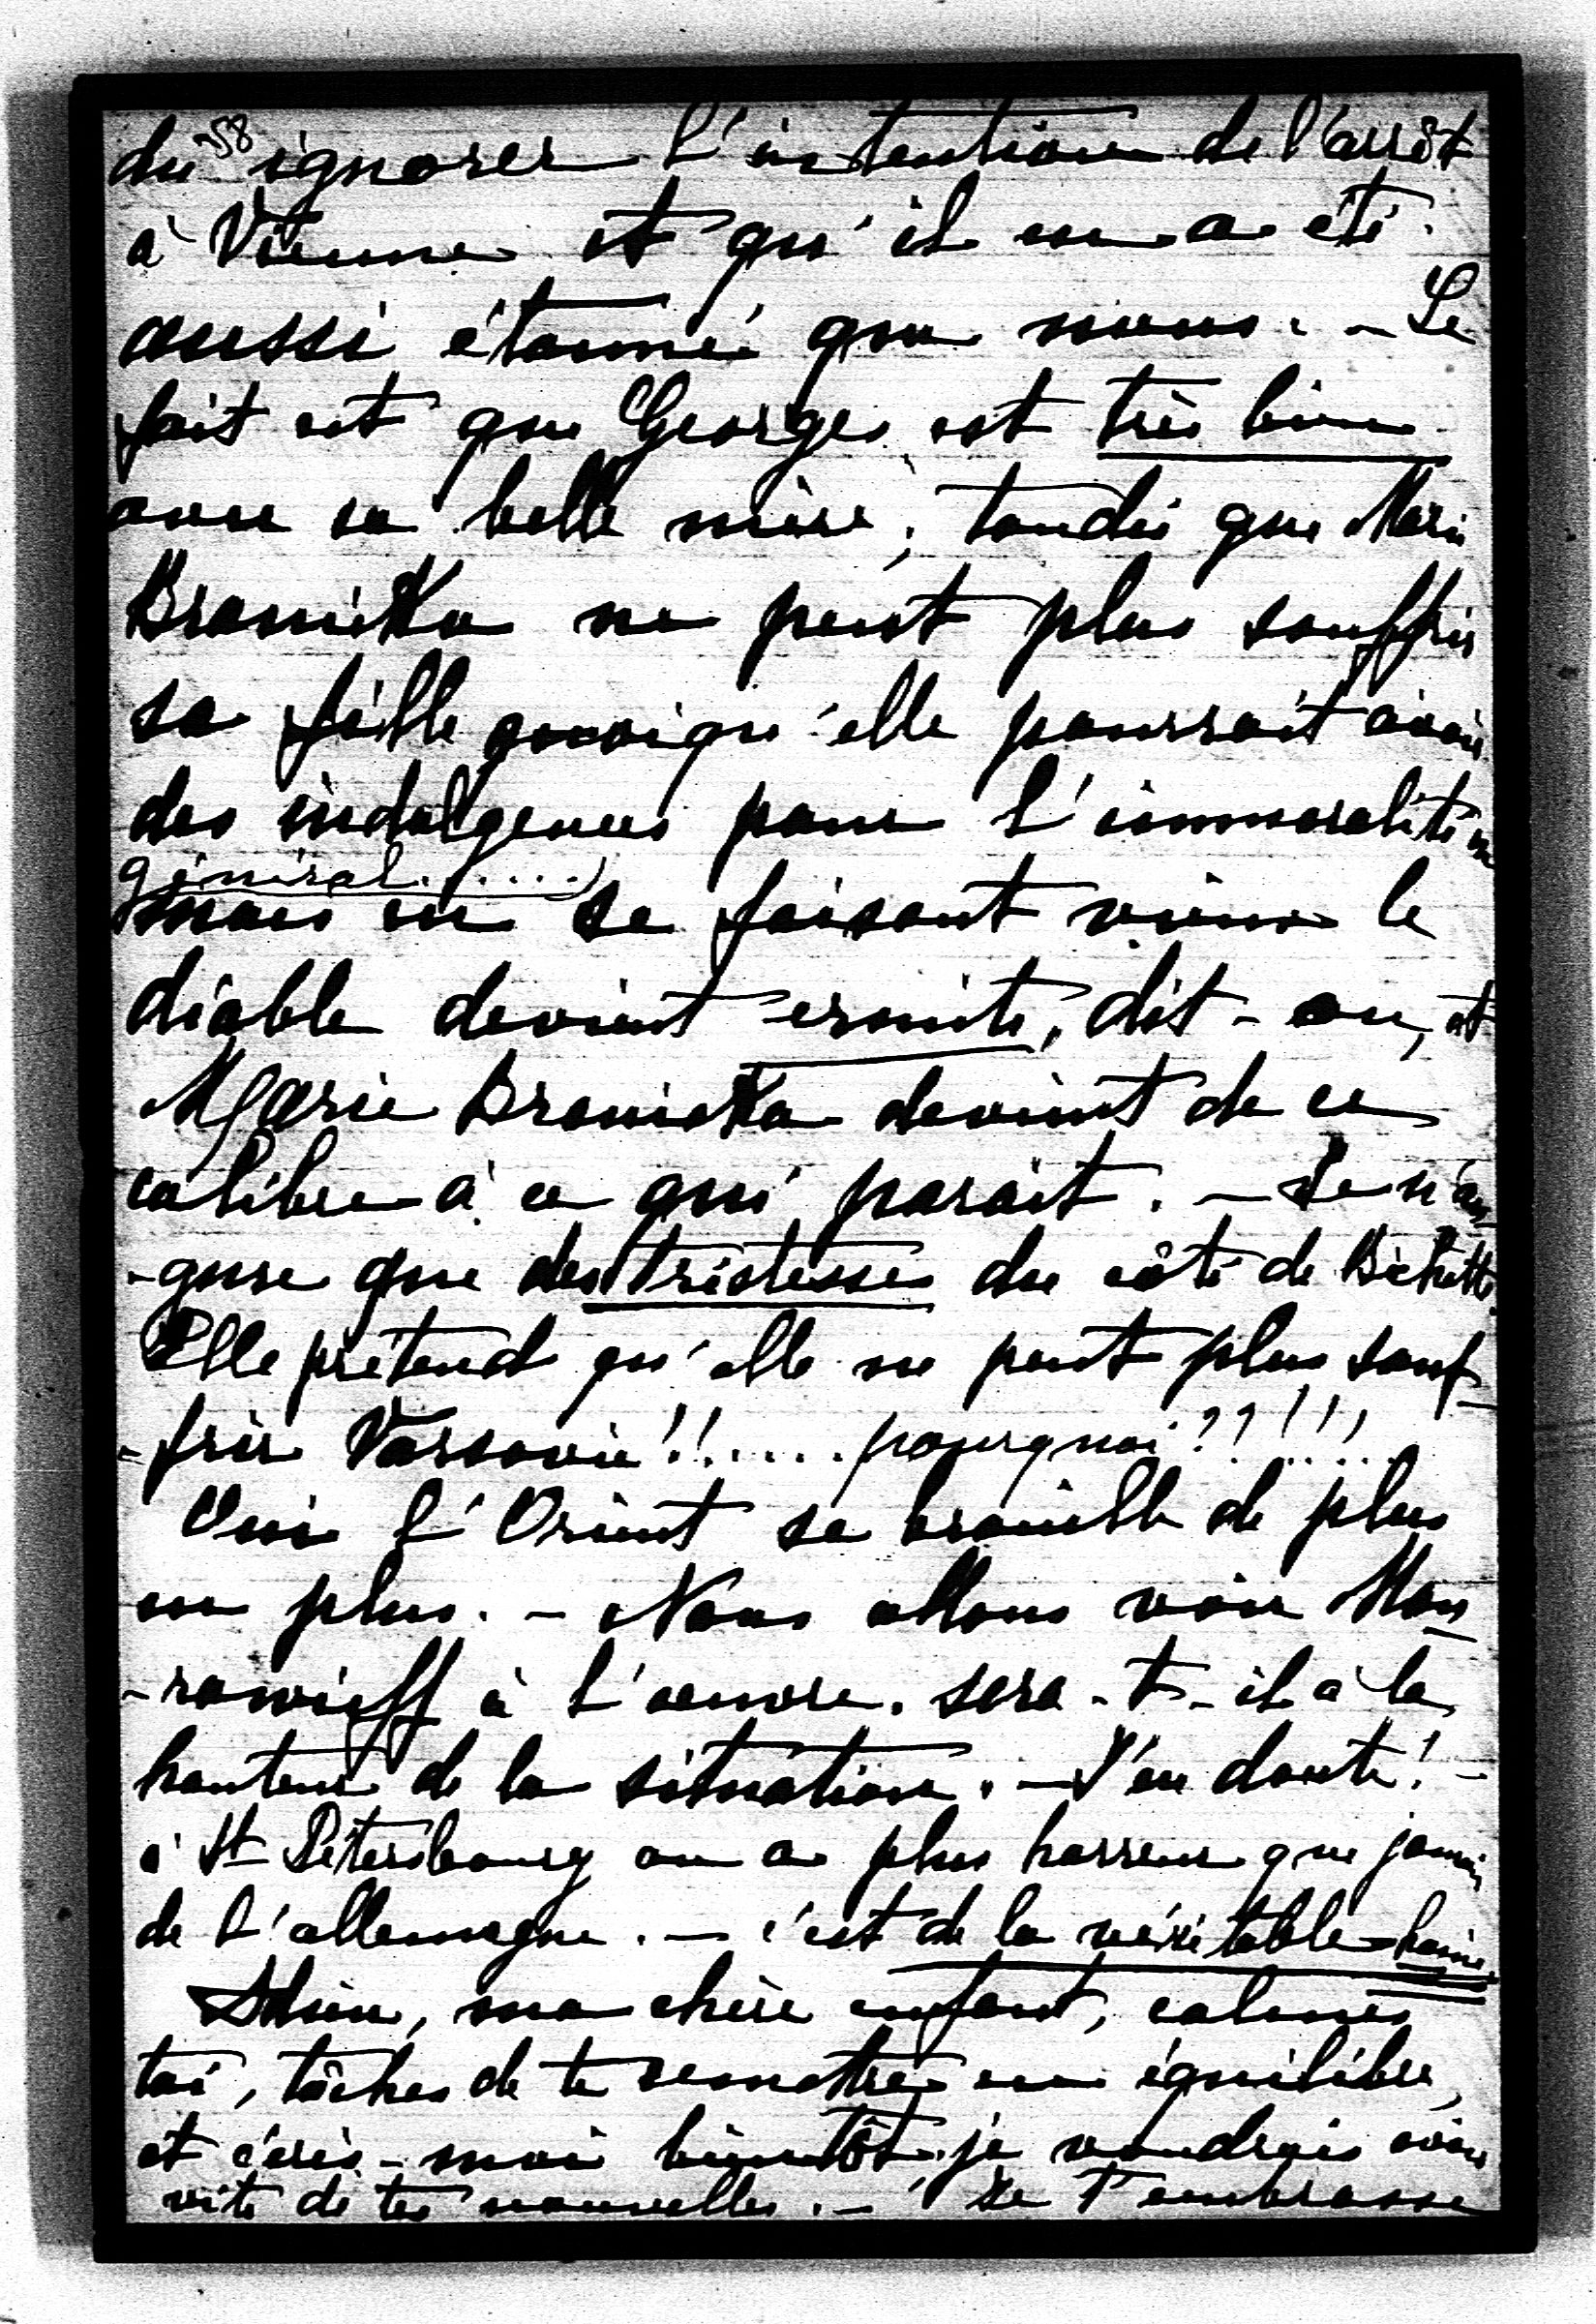 58
du ignorer l'intention de l'arrêt
à Vienne et qu'il en a été
aussi étonné que nous. - Le
fait est que George est très bien
avec sa belle mère, tandis que Marie
Branicka ne peut plus souffrir
sa fille quoiqu'elle pourrait avoir
des indulgences pour l'immoralité en
général......
mais en se faisant vieux le
diable devient ermite, dit-on, et
Marie Branicka devient de ce
calibre à ce qui parait. - Je n'au-
-gure que des tristesses du côté de Bichette.
Elle prétend qu'elle ne peut plus souf-
-frir Varsovie!!..... pourquoi??!!!
Oui l'Orient se brouille de plus
en plus. - Nous allons voir Mou-
-rawieff à l'oeuvre. sera-t-il à la
hauteur de la situation. - J'en doute! -
à St Pétersbourg on a plus horreur que jamais
de l'allemagne. - c'est de la véritable haine.
Adieu, ma chère enfant, calmes
toi, tâches de te remettre en équilibre,
et écris-moi bientôt, je voudrais avoir
vite de tes nouvelles. - Je t'embrasse